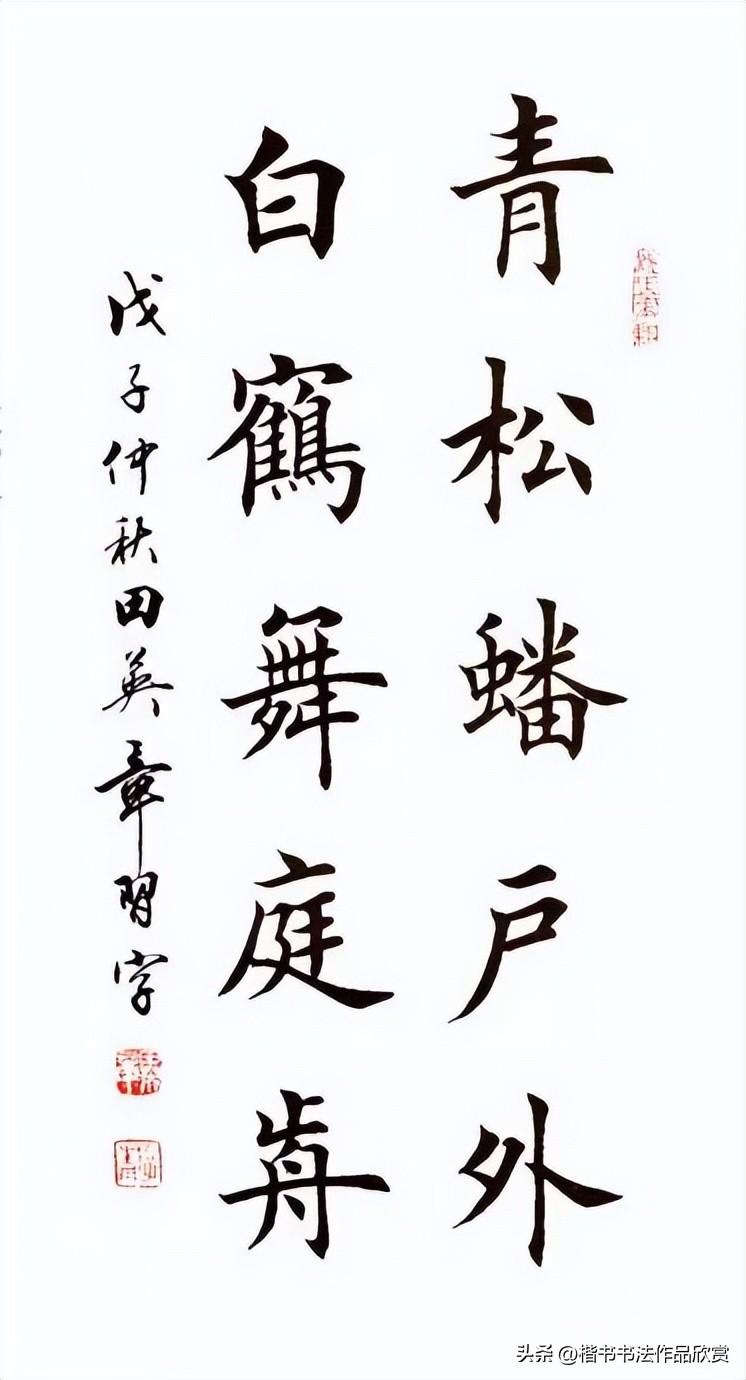 青松蟠戶外
白鶴舞庭歬
戊子仲秋田英章習字
头条 @楷书书法作品欣赏